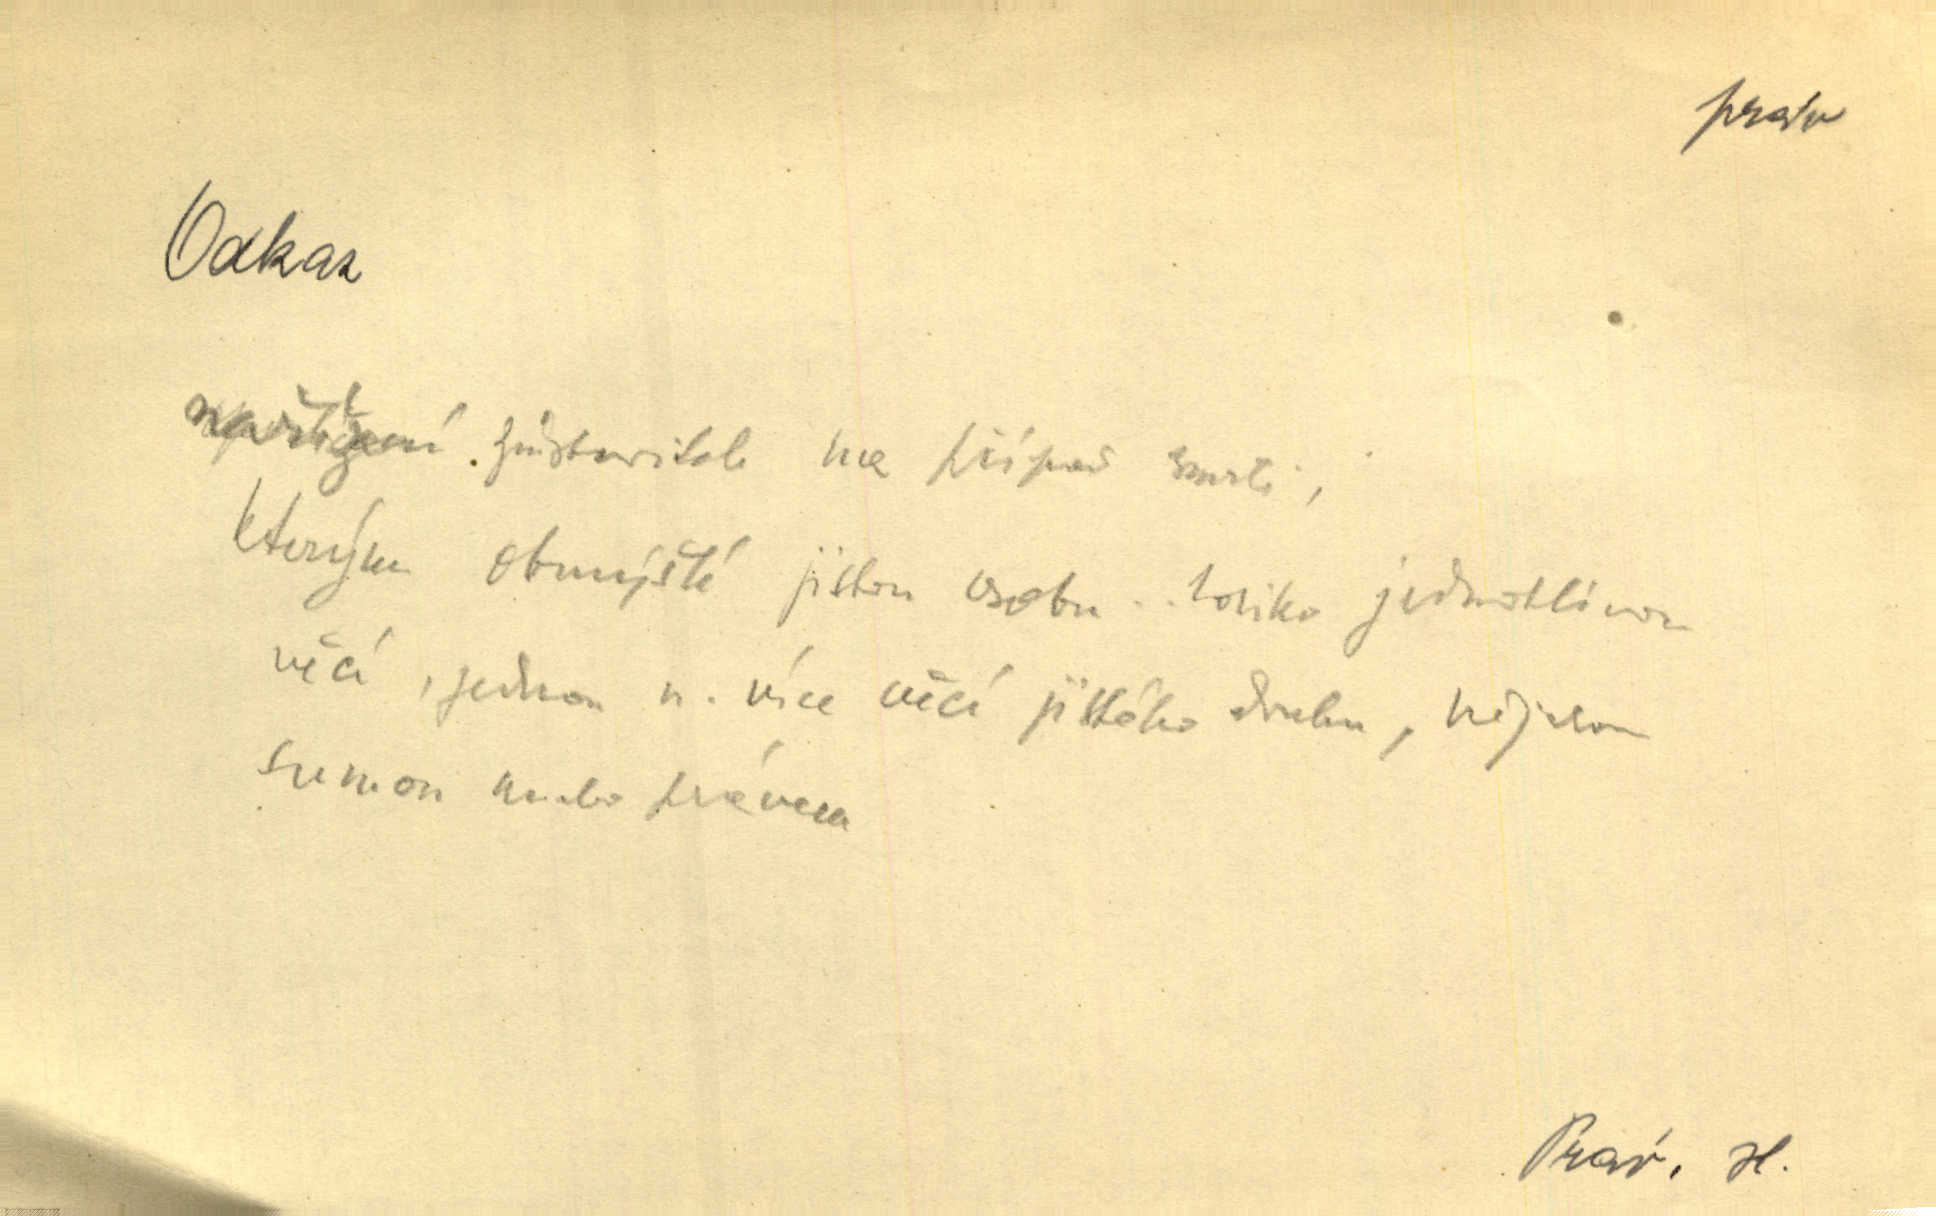 práv
Odkaz
nařízení zůstavitele na případ smrti,
kterým obmýšlí jistou osobu .. toliko jednotlivou
věcí, jednou n. více věcí jistého druhu, nějakou
sumou nebo právem
Práv. sl.